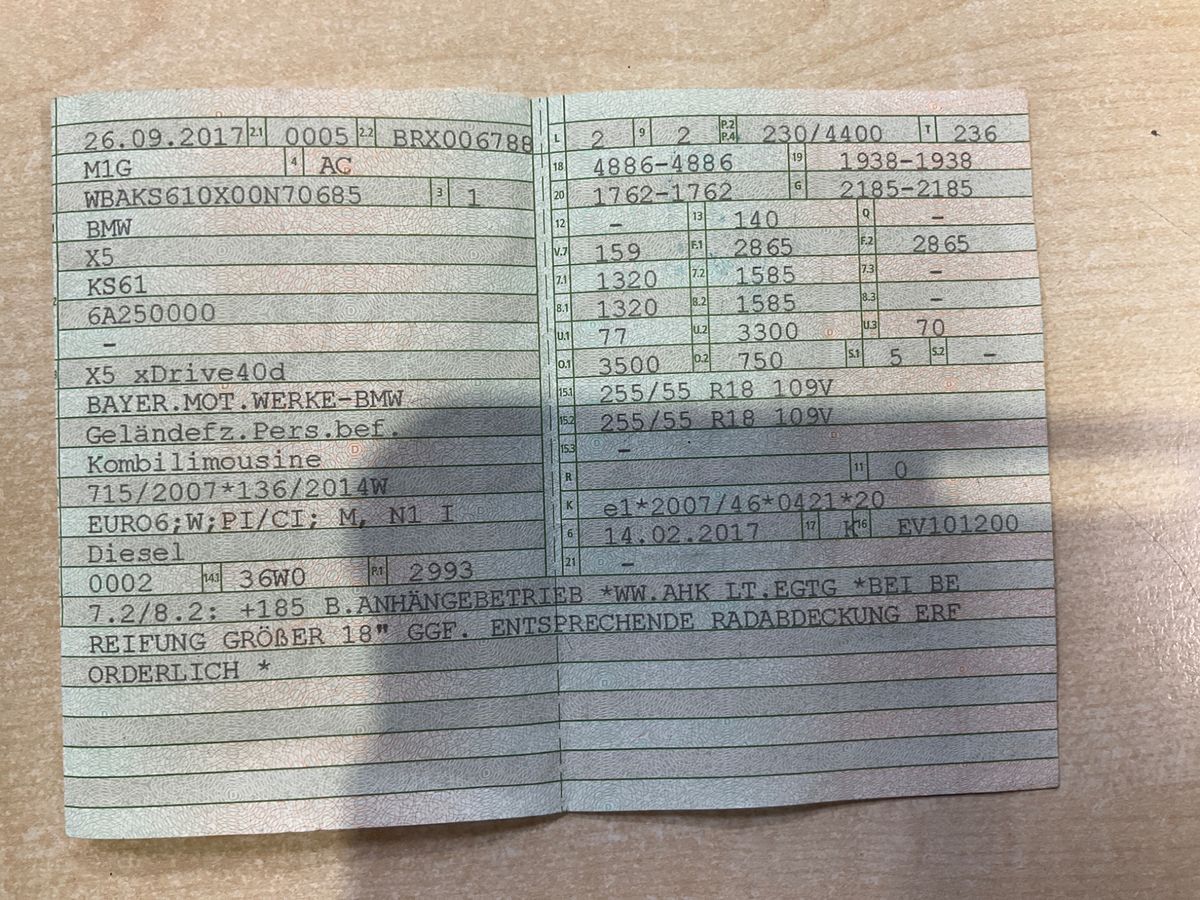 26.09.2017 2.1 0005 2.2 BRX006788
M1G 4 AC
WBAKS610X00N70685 3 1
BMW
X5
KS61
6A250000
-
X5 xDrive40d
BAYER.MOT.WERKE-BMW
Geländefz.Pers.bef.
Kombilimousine
715/2007*136/2014W
EURO6;W;PI/CI; M, N1 I
Diesel
0002 14.1 36W0 P.1 2993
L 2 9 2 P.2 P.4 230/4400 T 236
18 4886-4886 19 1938-1938
20 1762-1762 G 2185-2185
12 - 13 140 Q -
V.7 159 F.1 2865 F.2 2865
7.1 1320 7.2 1585 7.3 -
8.1 1320 8.2 1585 8.3 -
U.1 77 U.2 3300 U.3 70
O.1 3500 O.2 750 S.1 5 S.2 -
15.1 255/55 R18 109V
15.2 255/55 R18 109V
15.3 -
R 11 0
K e1*2007/46*0421*20
6 14.02.2017 17 K 16 EV101200
21 -
7.2/8.2: +185 B.ANHÄNGEBETRIEB *WW.AHK LT.EGTG *BEI BE
REIFUNG GRÖßER 18" GGF. ENTSPRECHENDE RADABDECKUNG ERF
ORDERLICH *